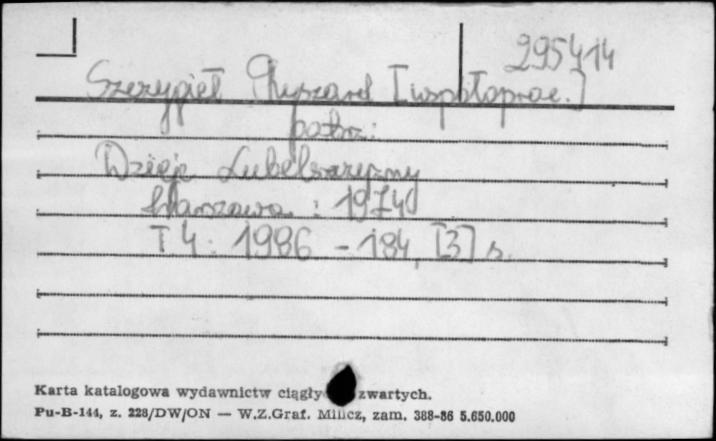 295414
Szczygieł Ryszard [współoprac.]
patrz:
Dzieje Lubelszczyzny
Warszawa : 1974
T. 4 : 1986. - 184, [3] s.
Karta katalogowa wydawnictw ciągły zwartych.
Pu-B-144, z. 228/DW/ON — W.Z.Graf. Milicz, zam. 388-86 5.650.000